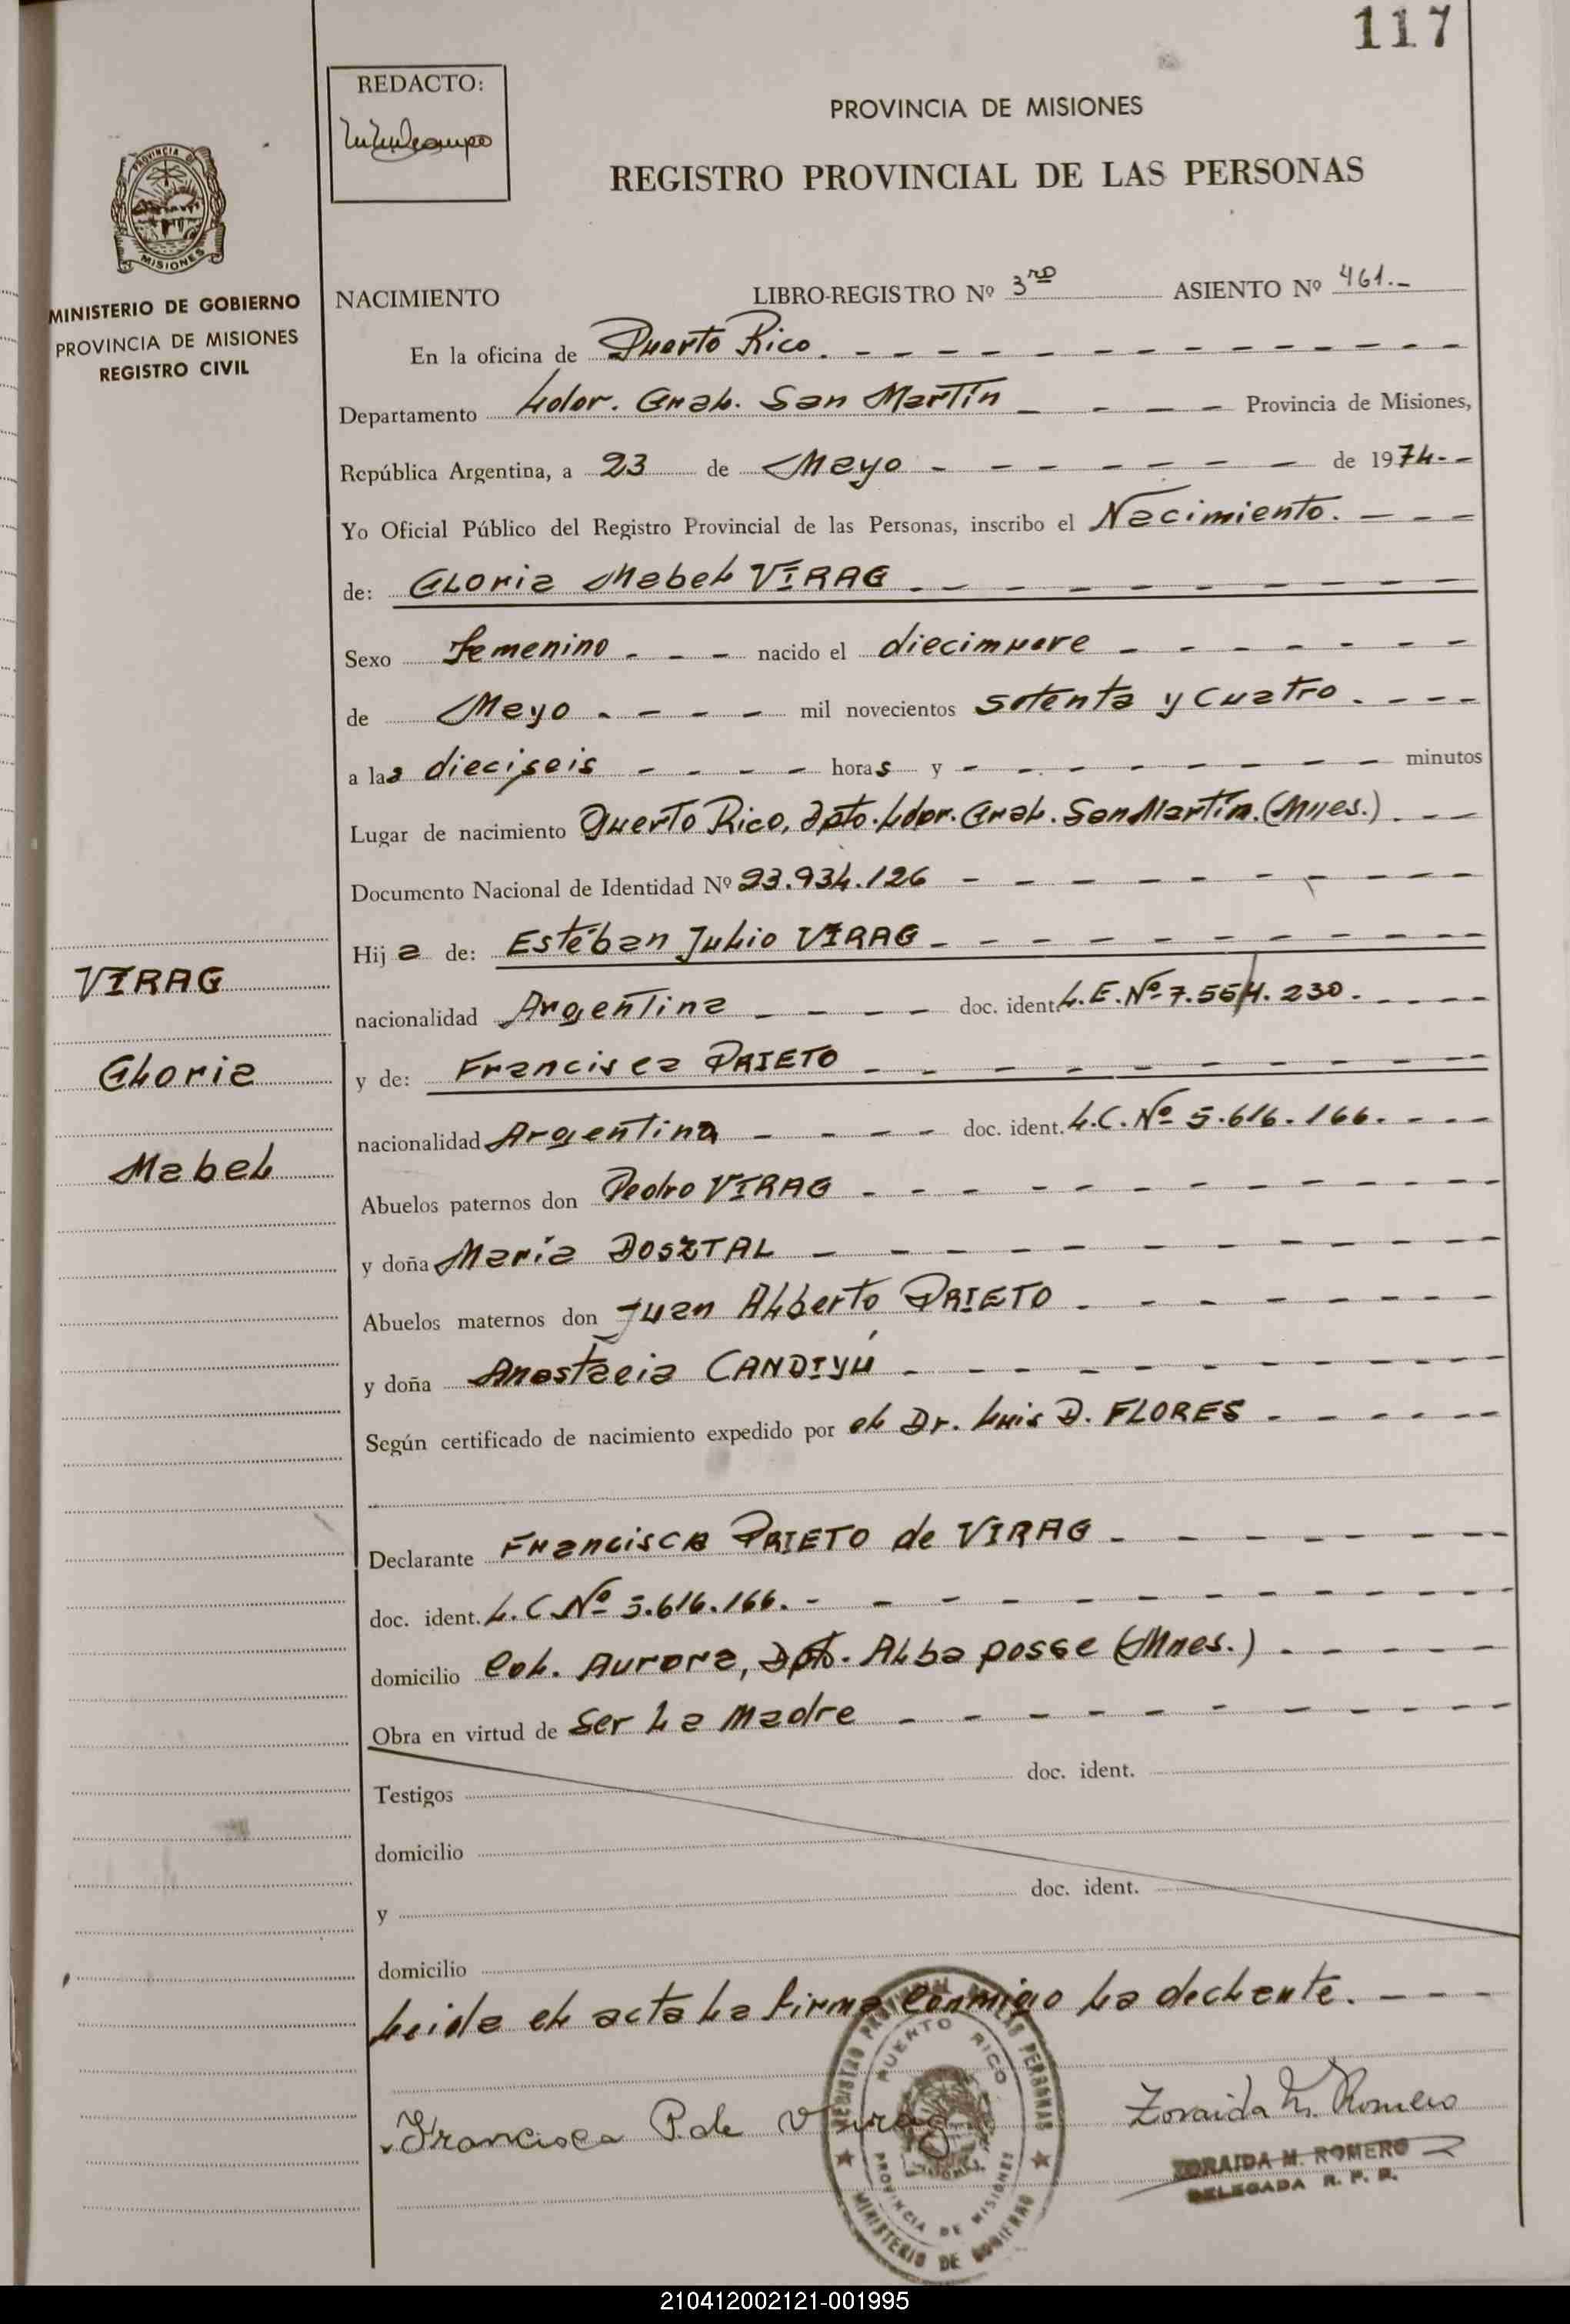 117
REDACTO:
PROVINCIA DE MISIONES
REGISTRO PROVINCIAL DE LAS PERSONAS
PROVINCIA DE
MISIONES
MINISTERIO DE GOBIERNO
PROVINCIA DE MISIONES
REGISTRO CIVIL
NACIMIENTO LIBRO-REGISTRO Nº 3ro ASIENTO Nº 461.-
En la oficina de Puerto Rico. - - - - - - - - - - - -
Departamento Ldor. Gral. San Martín - - - - Provincia de Misiones,
República Argentina, a 23 de Mayo - - - - - - - de 1974.- -
Yo Oficial Público del Registro Provincial de las Personas, inscribo el Nacimiento. - - -
de: Gloria Mabel VIRAG - - - - - - - - -
Sexo Femenino - - - nacido el diecinueve - - - - - - -
de Mayo - - - - mil novecientos setenta y cuatro. - - -
a las dieciseis - - - - horas y - - - - - - - - minutos
Lugar de nacimiento Puerto Rico, Dpto. Ldor. Gral. San Martín. (Mnes.) . - -
Documento Nacional de Identidad Nº 23.934.126 - - - - - - - - - -
Hija de: Estéban Julio VIRAG - - - - - - - - - -
VIRAG
nacionalidad Argentina - - - - doc. ident. L.E. Nº 7.564.230. - - - -
Gloria
y de: Francisca PRIETO - - - - - - - - - -
nacionalidad Argentina - - - - doc. ident. L.C. Nº 5.616.166. - - -
Mabel
Abuelos paternos don Pedro VIRAG - - - - - - - - - - -
y doña María DOSZTAL - - - - - - - - - - -
Abuelos maternos don Juan Alberto PRIETO - - - - - - -
y doña Anastacia CANDIYÚ - - - - - - - - - -
Según certificado de nacimiento expedido por el Dr. Luis D. FLORES - - - - - -
Declarante Francisca PRIETO de VIRAG - - - - - - -
doc. ident. L.C. Nº 5.616.166. - - - - - - - - - - -
domicilio Col. Aurora, Dpto. Alba posse (Mnes.) - - - - -
Obra en virtud de Ser la Madre - - - - - - - - - -
Testigos doc. ident.
domicilio
y doc. ident.
domicilio
Leida el acta la firma conmigo la declente. - - -
Francisca P. de Virag
Zoraida M. Romero
ZORAIDA M. ROMERO
DELEGADA R. P. P.
REGISTRO PROVINCIAL DE LAS PERSONAS
PUERTO RICO
PROVINCIA DE MISIONES
MINISTERIO DE GOBIERNO
210412002121-001995